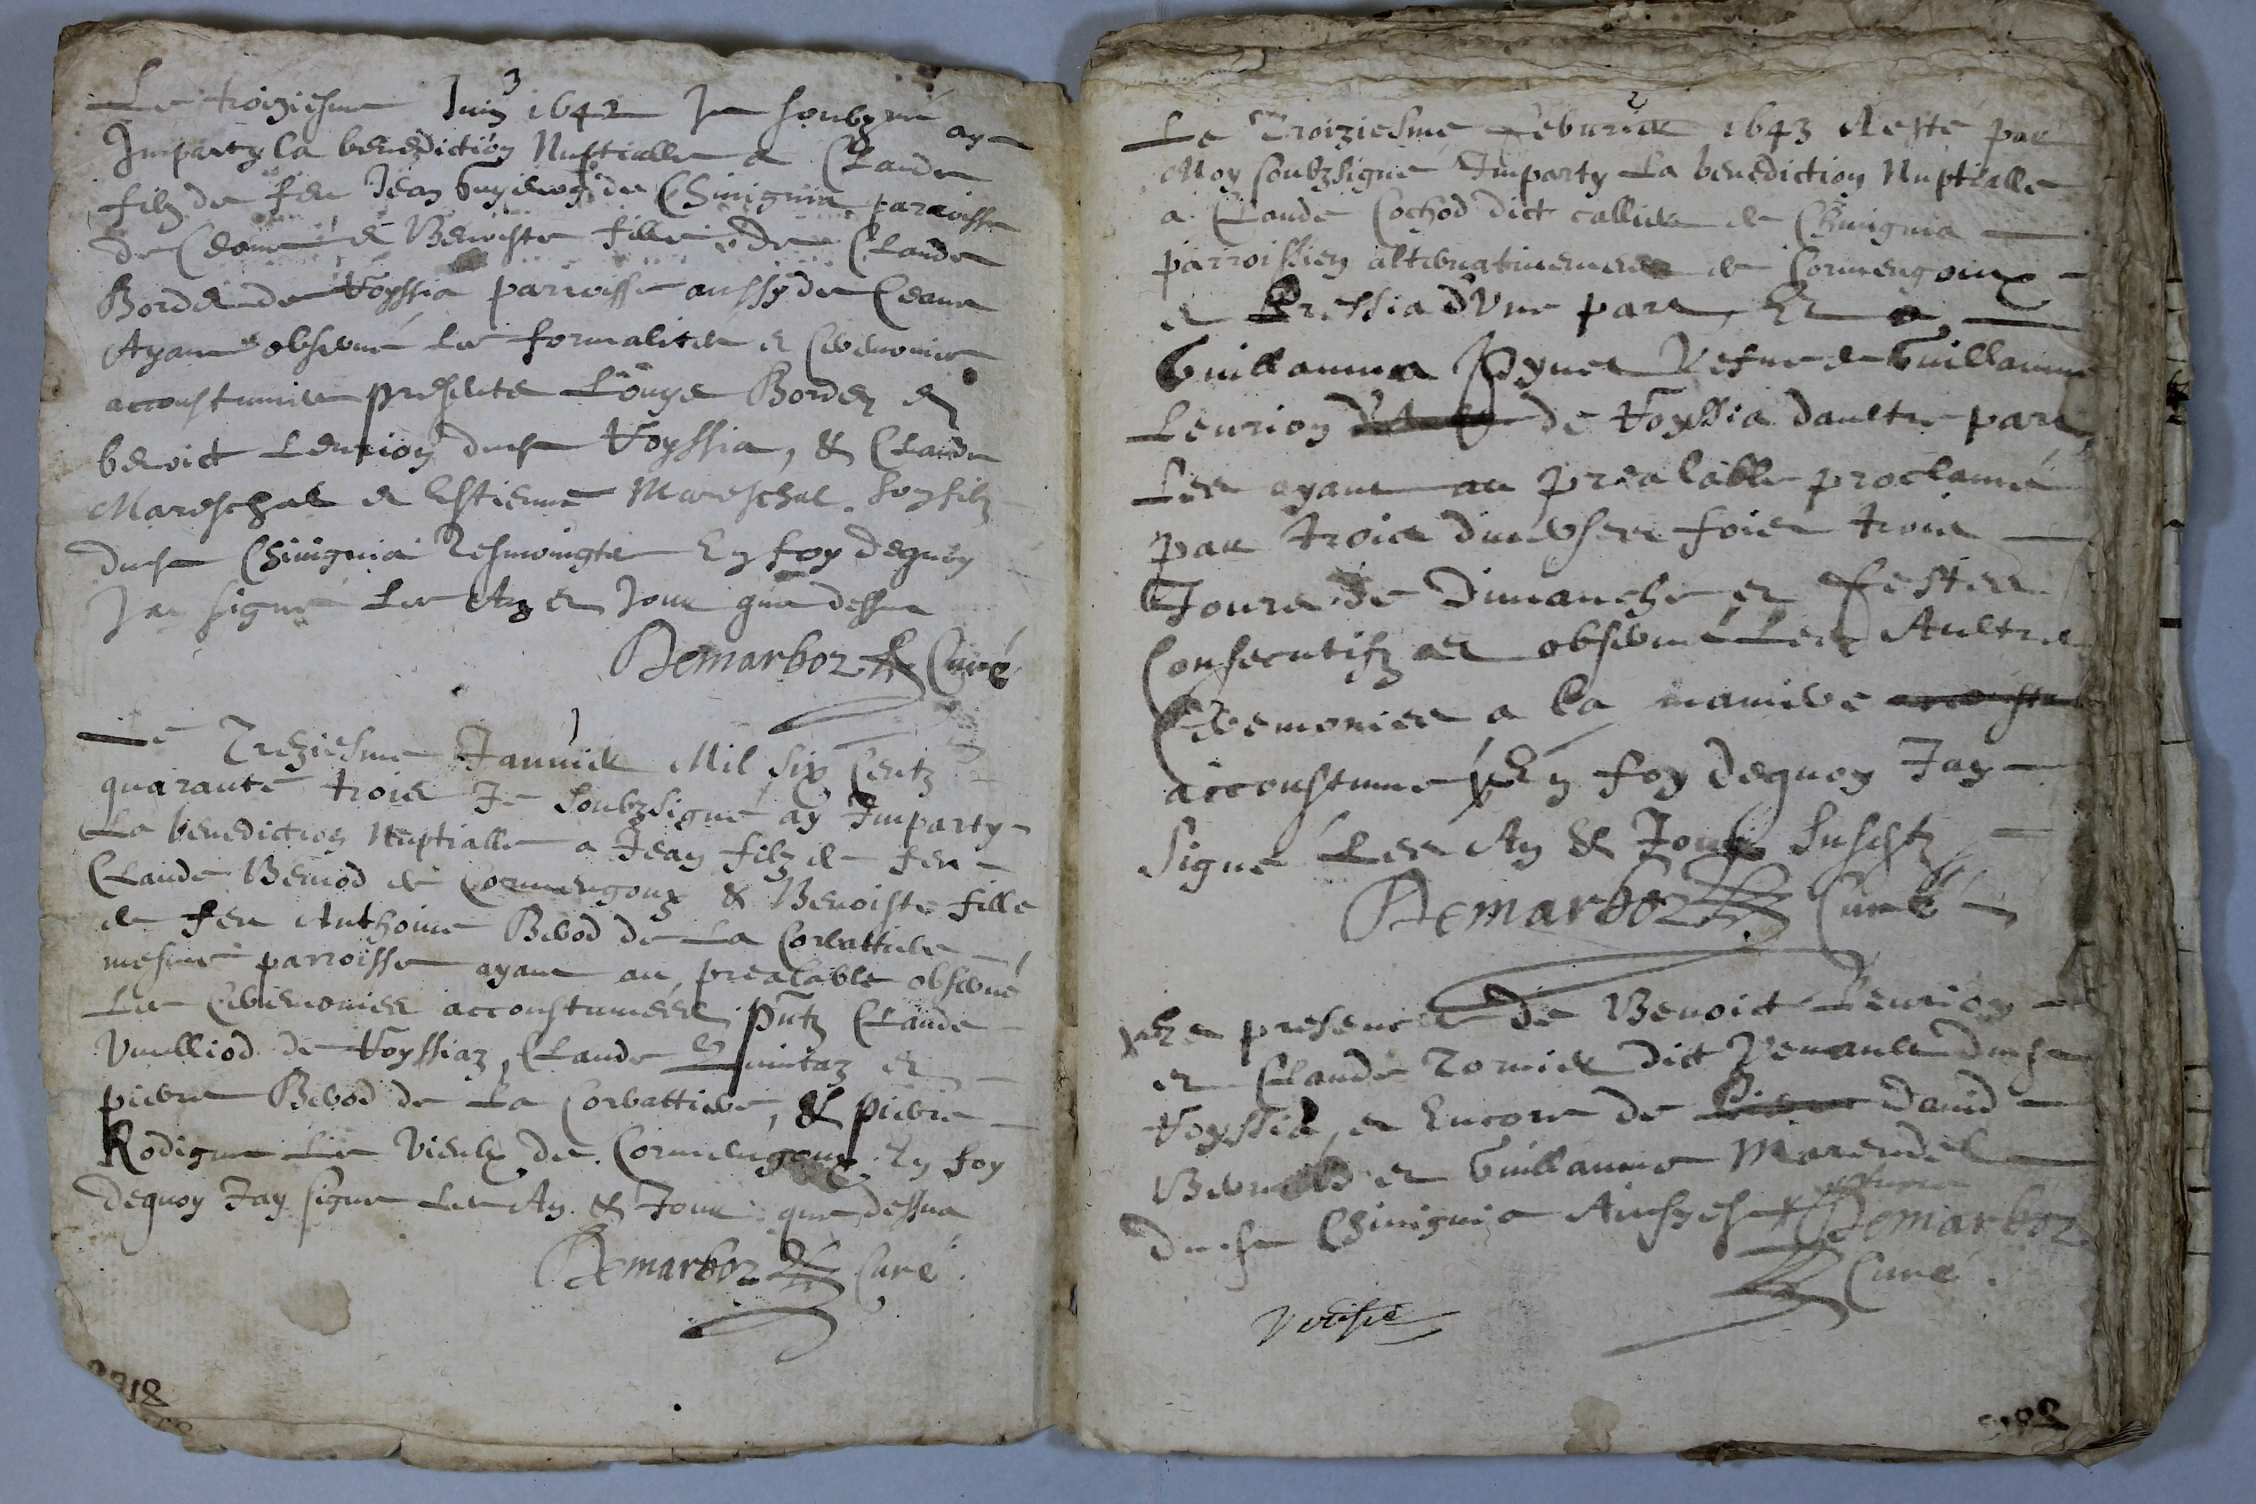 3
Le troiziesme Juin 1642 Je soubzné ay
Imparty la benediction Nuptialle a Claude
filz de feu Jean de Chinignia parroisse
de et Benoiste fille de Claude
Bordel de Voyssia parroisse aussy de
Ayant observé les formalites et Ceremonies
accoustumées presente Louys Bordel et
benoict Leurion dudit Voyssia, & Claude
Mareschal et Estienne Mareschal son filz
dudit Chinignia Tesmoingts En foy dequoy
Jay signé Les An et Jour que dessus
Demarboz Curé
1
Le Treziesme Januier Mil six Centz
quarante trois Je soubzsigné ay Imparty
La benediction Nuptialle a Jean filz de feu
Claude de Cormengoux & Benoiste fille
de feu Anthoine Berod de La Corbattiere
mesme parroisse ayant au prealable observé
Les Ceremonies accoustumées pntz Claude
Vuilliod de Voyssiaz, Claude et
pierre Berod de La Corbattiere, & pierre
Rodigue Le vieulx de Cormengoux. En foy
dequoy Jay signé Les An & Jour que dessus
Demarboz Curé
2
Le Troiziesme Feburier 1643 A esté par
Moy soubzsigné Imparty La benediction Nuptialle
a Claude Cochod dict callier de Chinignia
parroissien alternativement de Cormengoux
et Pressia d'Une part, Et a
Guillauma Peynet Vefue de Guillaume
Leurion de Voyssia daultre part,
Les ayant au prealable proclamé
par trois diuerses fois trois
Jours de Dimanche et Festes
Consecutifz et observé Les Aultres
Ceremonies a la maniere
accoustumé En foy dequoy Jay
signé Les An & Jour susditz
Demarboz Curé
presence de Benoict Leurion
et Claude Tornier dict dudit
Voyssia, et Encore de David
et Guillaume Marendel
dudit Chinignia Ainsy est
Demarboz
Curé.